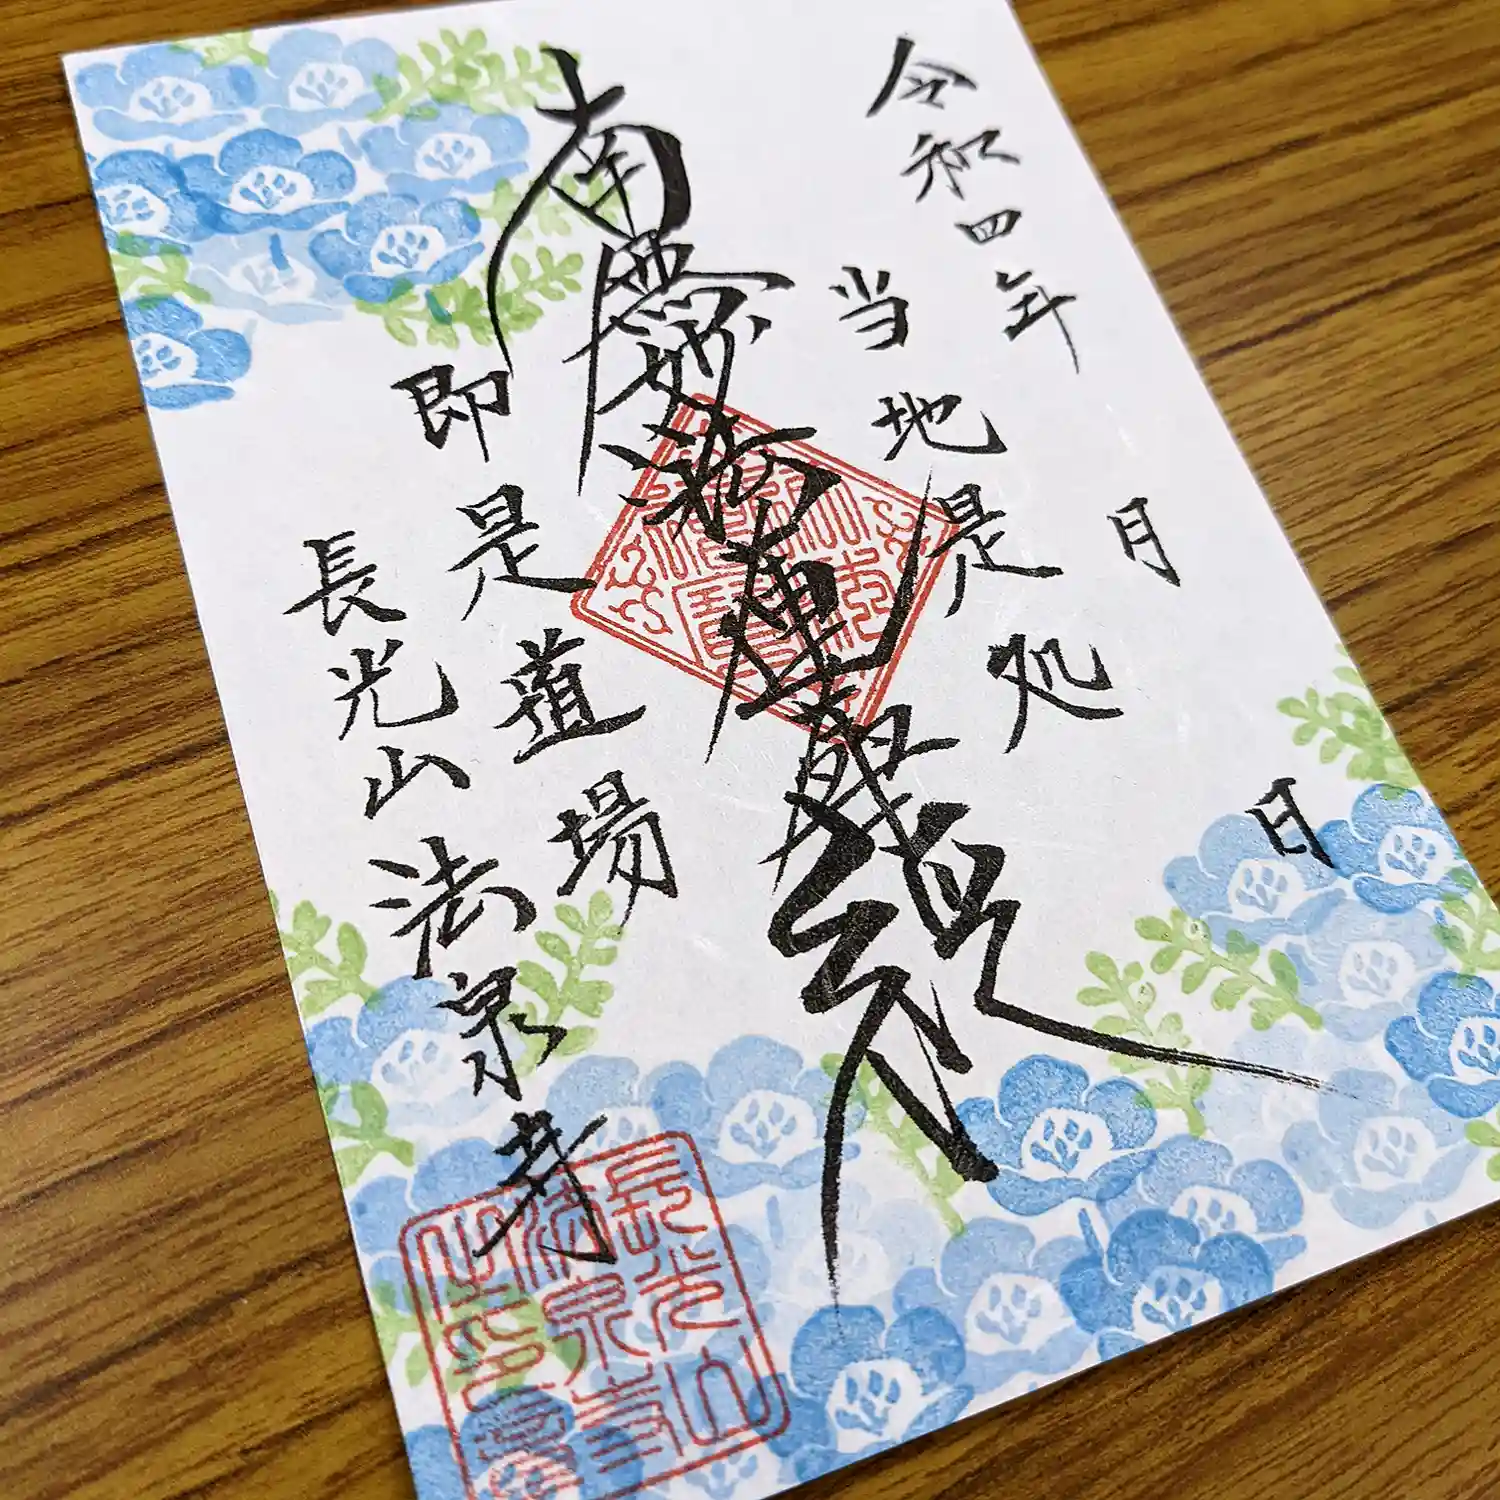 令和四年 月 日
当地是処
南無妙法蓮華経
即是道場
長光山法泉寺
長光山
法泉寺